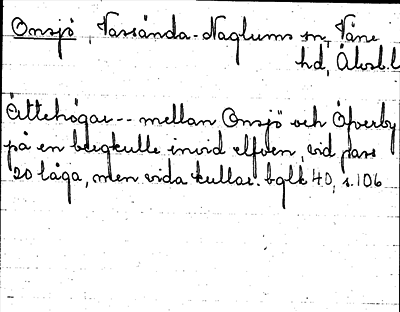 Onsjö, Vassända-Naglums sn, Väne
hd, Älvsb.l
Ättehögar-- mellan Onsjö och Öfverby
på en bergkulle invid elfven, vid pass
20 låga, men vida kullar. bglk 40, s.106